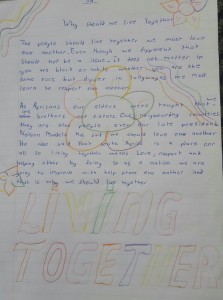 Why should we live Together
The people should live together we must love
one another. Even though we different that
should not be a issue. It does not matter if
you are black or white whether we are the
same race but differ in languages we must
learn to respect one another
As Africans our elders were taught that
we brothers and sisters our neighbouring countries
they are also people even our late president
Nelson Mandela He said we should love one another
He also said that South Africa is a place for
all so living together makes Love, respect and
helping other by doing so as a nation we are
going to improve with help from one another and
that is why we should live together
LIVING
TOGETHER